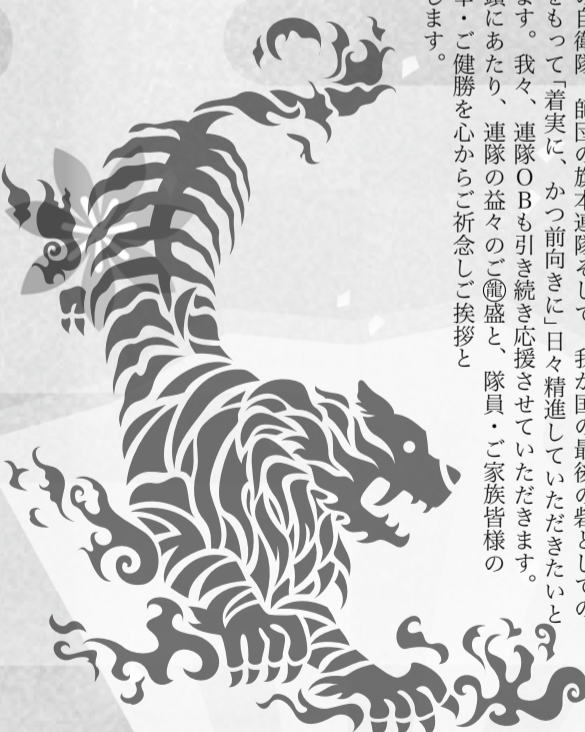 自衛隊、師団の旗本連隊として、我が国の最後の砦としての
をもって「着実に、かつ前向きに」日々精進していただきたいと
ます。我々、連隊OBも引き続き応援させていただきます。
にあたり、連隊の益々のご㊥盛と、隊員・ご家族皆様の
・ご健勝を心からご祈念しご挨拶と
します。